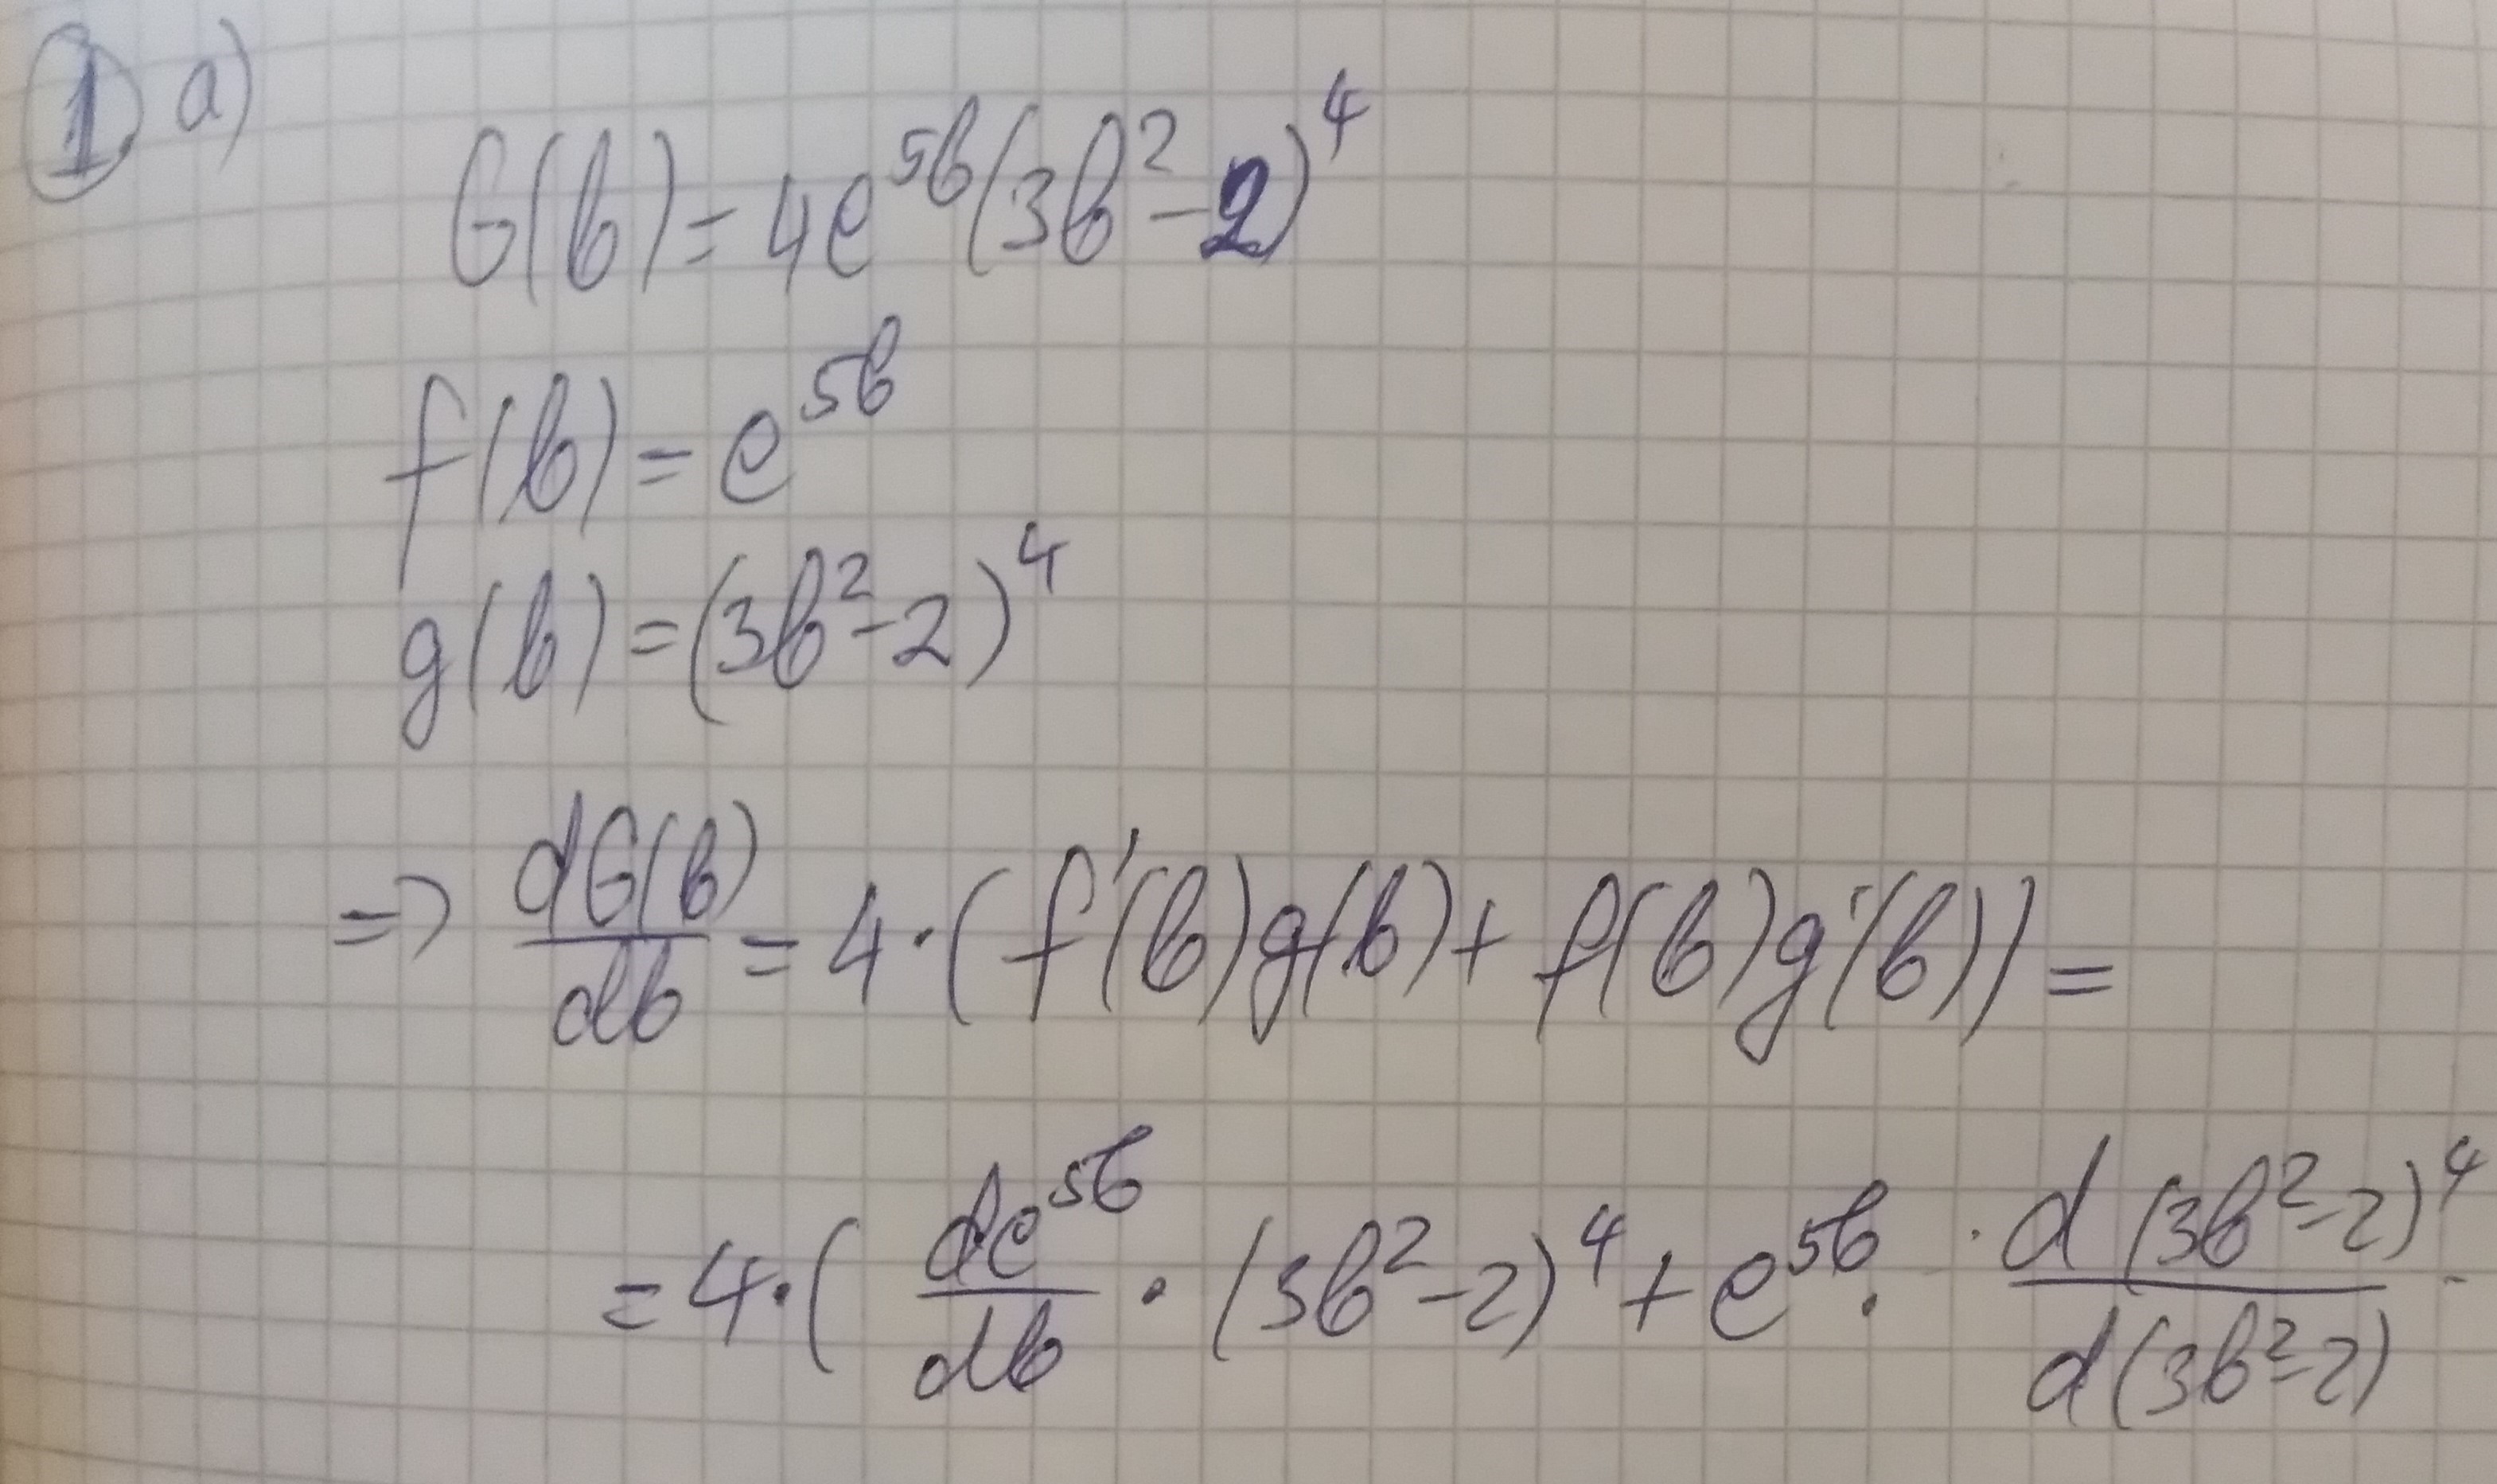 1. a)
G(b) = 4e^{5b}(3b^2 - 2)^4
f(b) = e^{5b}
g(b) = (3b^2 - 2)^4
=> \frac{dG(b)}{db} = 4 · (f'(b)g(b) + f(b)g'(b)) =
= 4 · ( \frac{de^{5b}}{db} · (3b^2 - 2)^4 + e^{5b} · \frac{d(3b^2 - 2)^4}{d(3b^2 - 2)} ·